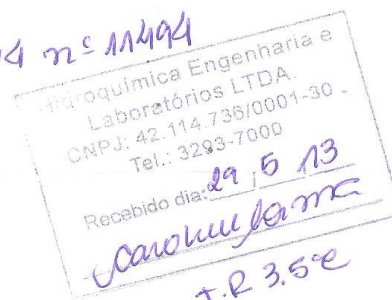 4 nº 11494
Hidroquímica Engenharia e
Laboratórios LTDA.
CNPJ: 42.114.736/0001-30
Tel.: 3293-7000
Recebido dia: 29, 5 /13
T.R 3.5°C